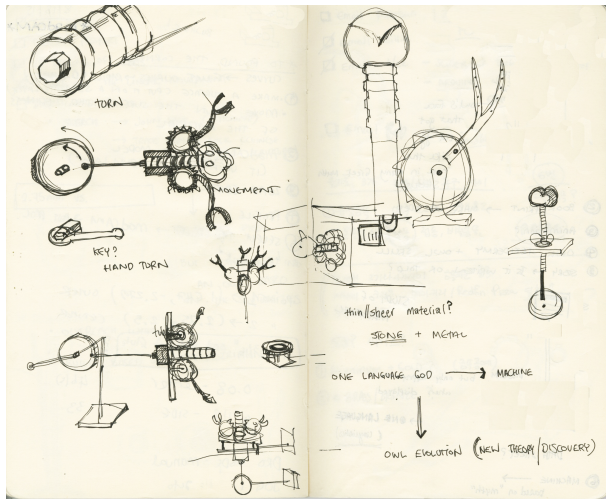 TURN
MOVEMENT
KEY?
HAND TORN
thin//sheer material?
STONE + METAL
ONE LANGUAGE GOD → MACHINE
OWL EVOLUTION (NEW THEORY/DISCOVERY)